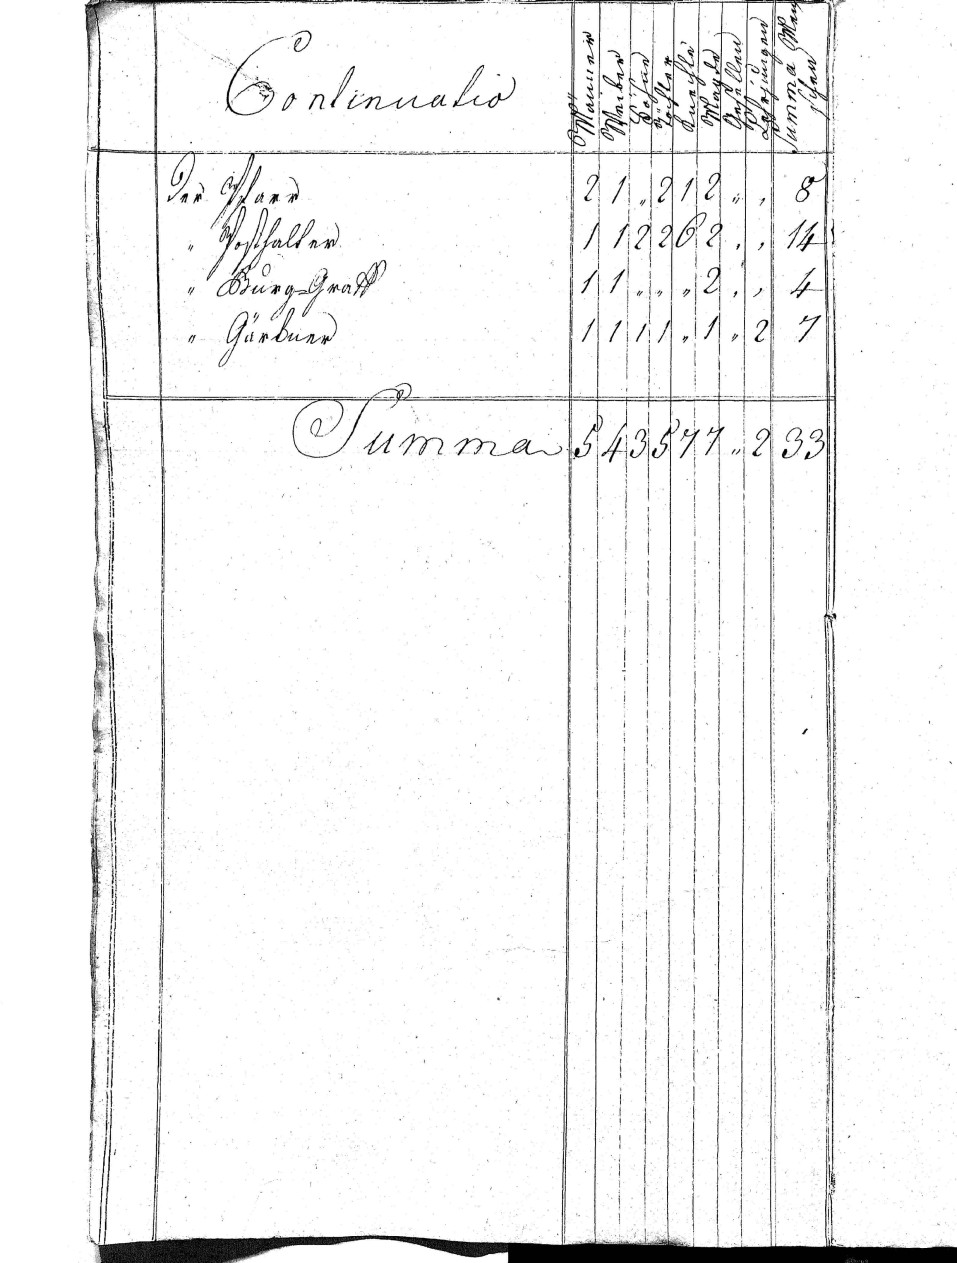 Continuatio Männer Weiber Söhne Töchter Knechte Mayde Gesellen Lehrjungen Summa Menschen
Der Pfarr 2 1 „ 2 1 2 „ , 8
„ Posthalter 1 1 2 2 6 2 , , 14
„ Burg=Graff 1 1 „ „ „ 2 , , 4
„ Gärtner 1 1 1 1 „ 1 „ 2 7
Summa 5 4 3 5 7 7 „ 2 33